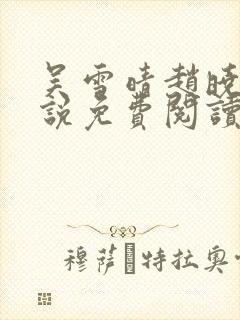 吴雪晴趙晓
說免費閱讀
穆萨·特拉奥